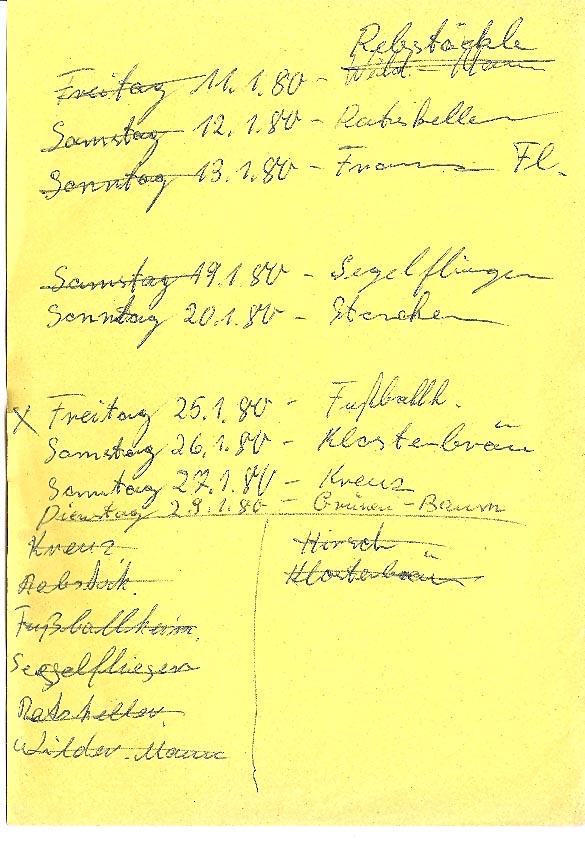 Rebstöckle
Freitag 11.1.80 - Wild-Mann
Samstag 12.1.80 - Ratskeller
Sonntag 13.1.80 - Franz Fl.
Samstag 19.1.80 - Segelflieger
Sonntag 20.1.80 - Storchen
X Freitag 25.1.80 - Fußballh.
Samstag 26.1.80 - Klosterbräu
Sonntag 27.1.80 - Kreuz
Dienstag 29.1.80 - Grünen-Baum
Kreuz
Rebstök.
Fußballheim.
Seegelflieger
Ratskeller.
Wilder-Mann
Hirsch
Klosterbräu